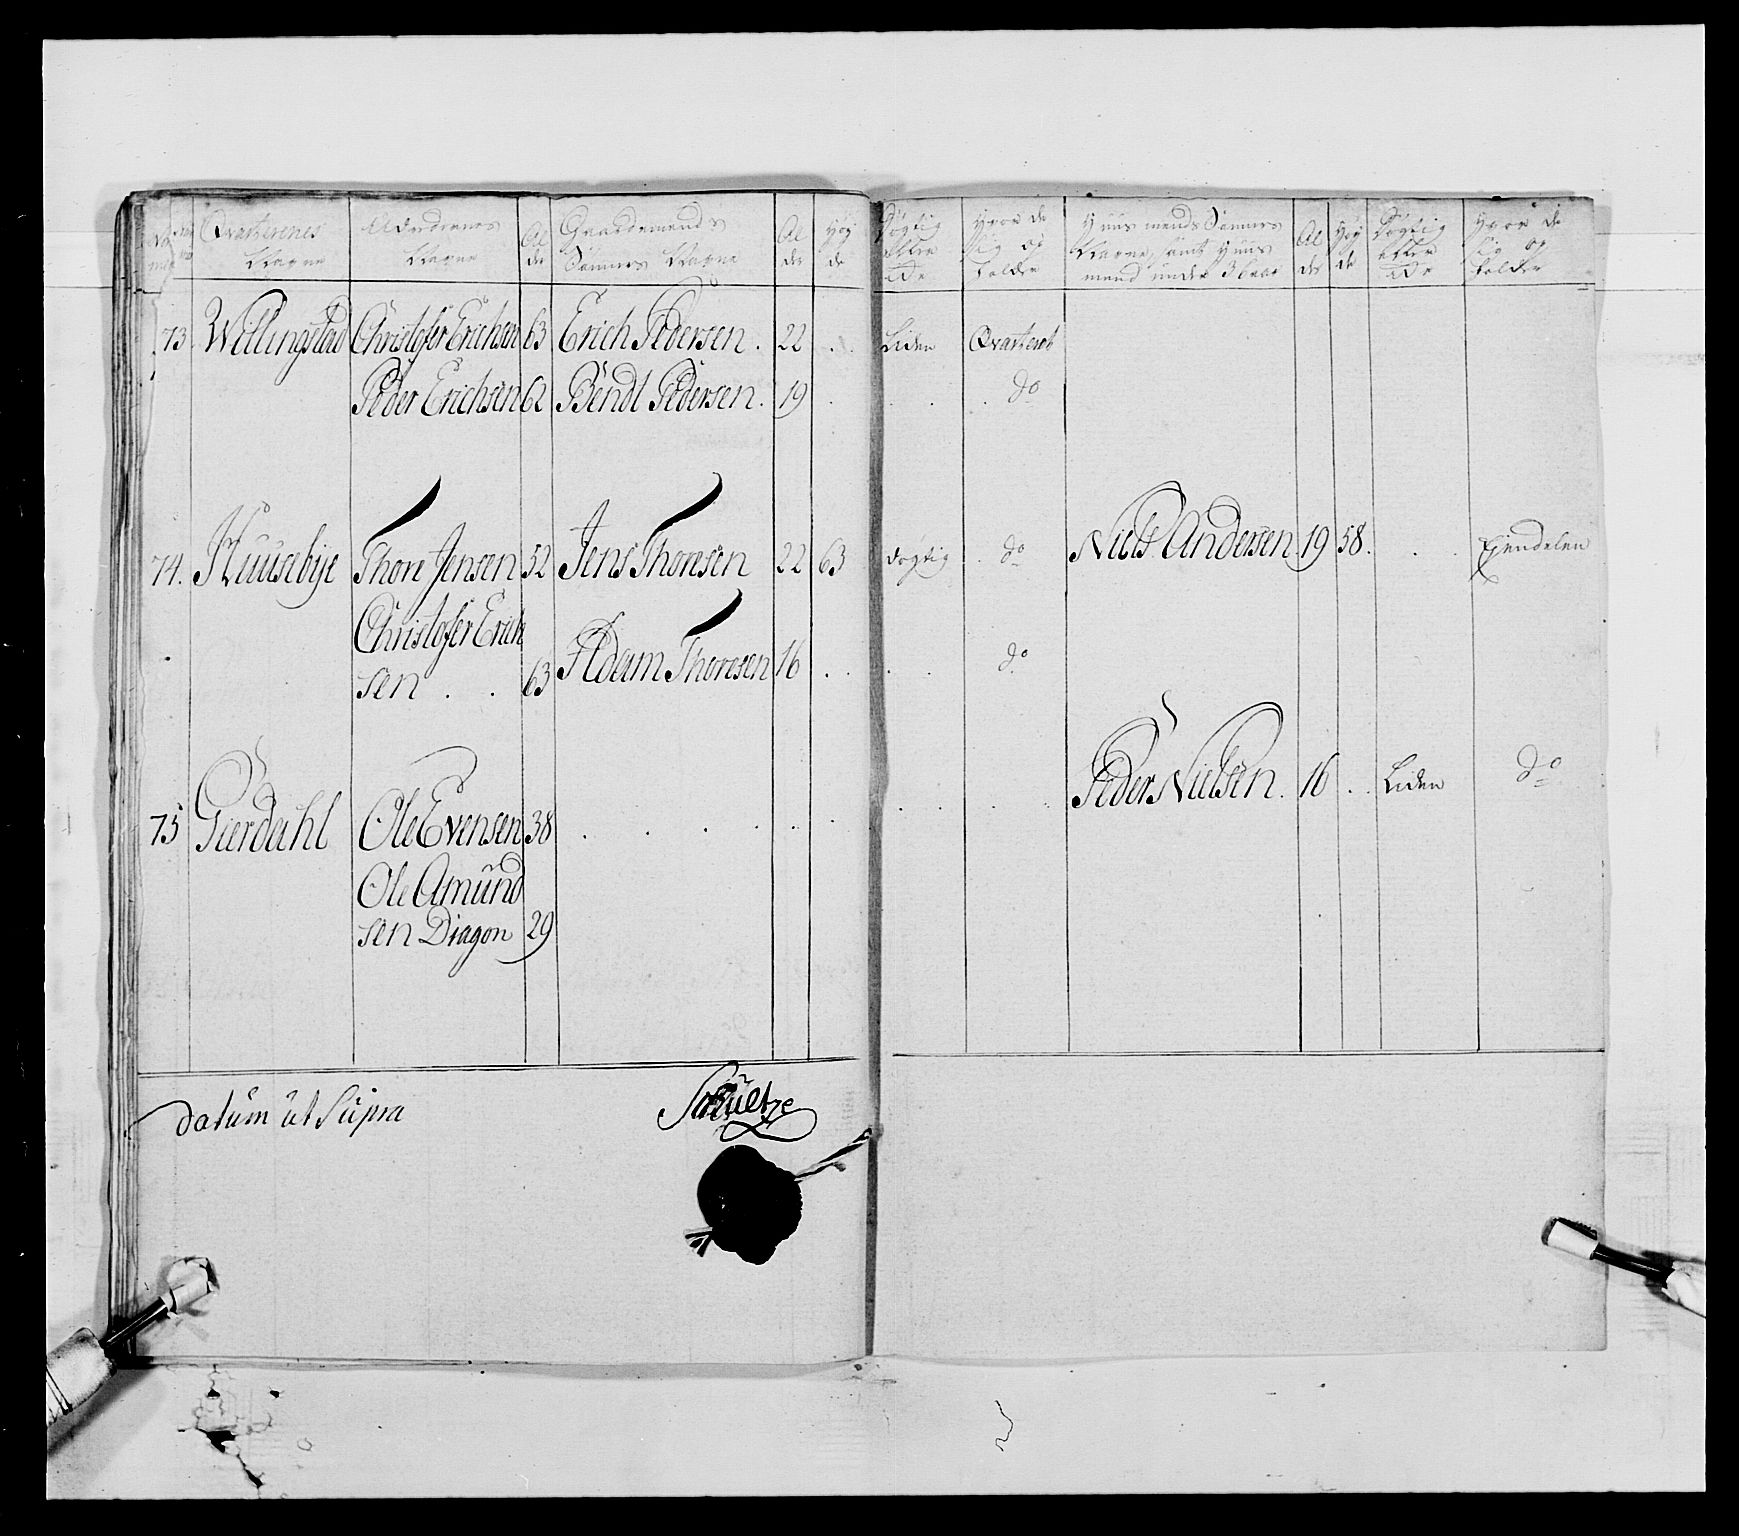 Qvarterenes Nagne
Alderdienes Nagne
Al der
Gaardemends Sønners Nagne
Al der
Høy de
Døgtig eller Ude
Hvor de sig op holder
Huusmends Sønners Nagne, samt Huus mend under 36 aar
Al der
Høy de
Døgtig eller Ude
Hvor de sig op holder
73 Willingstad Christofer Erichsen 63 Erich Pedersen. 22 . . Liden Qvarteret
Peder Erichsen 62 Bendt Pedersen. 19 . . . . do
74. Huusebye Thore Jensen 52 Jens Thoresen 22 63 døgtig . do Niels Andersen 19 58. . . Ejendelen
Christofer Erich
sen . . 63 Adam Thoresen 16 . . . . do
Peder Nielsen. 16 . . Liden do
75 Gierdahl Ole Evensen 38 . . . . . .
Ole Amund
sen Dragon 29
datum ut Supra
Schultze